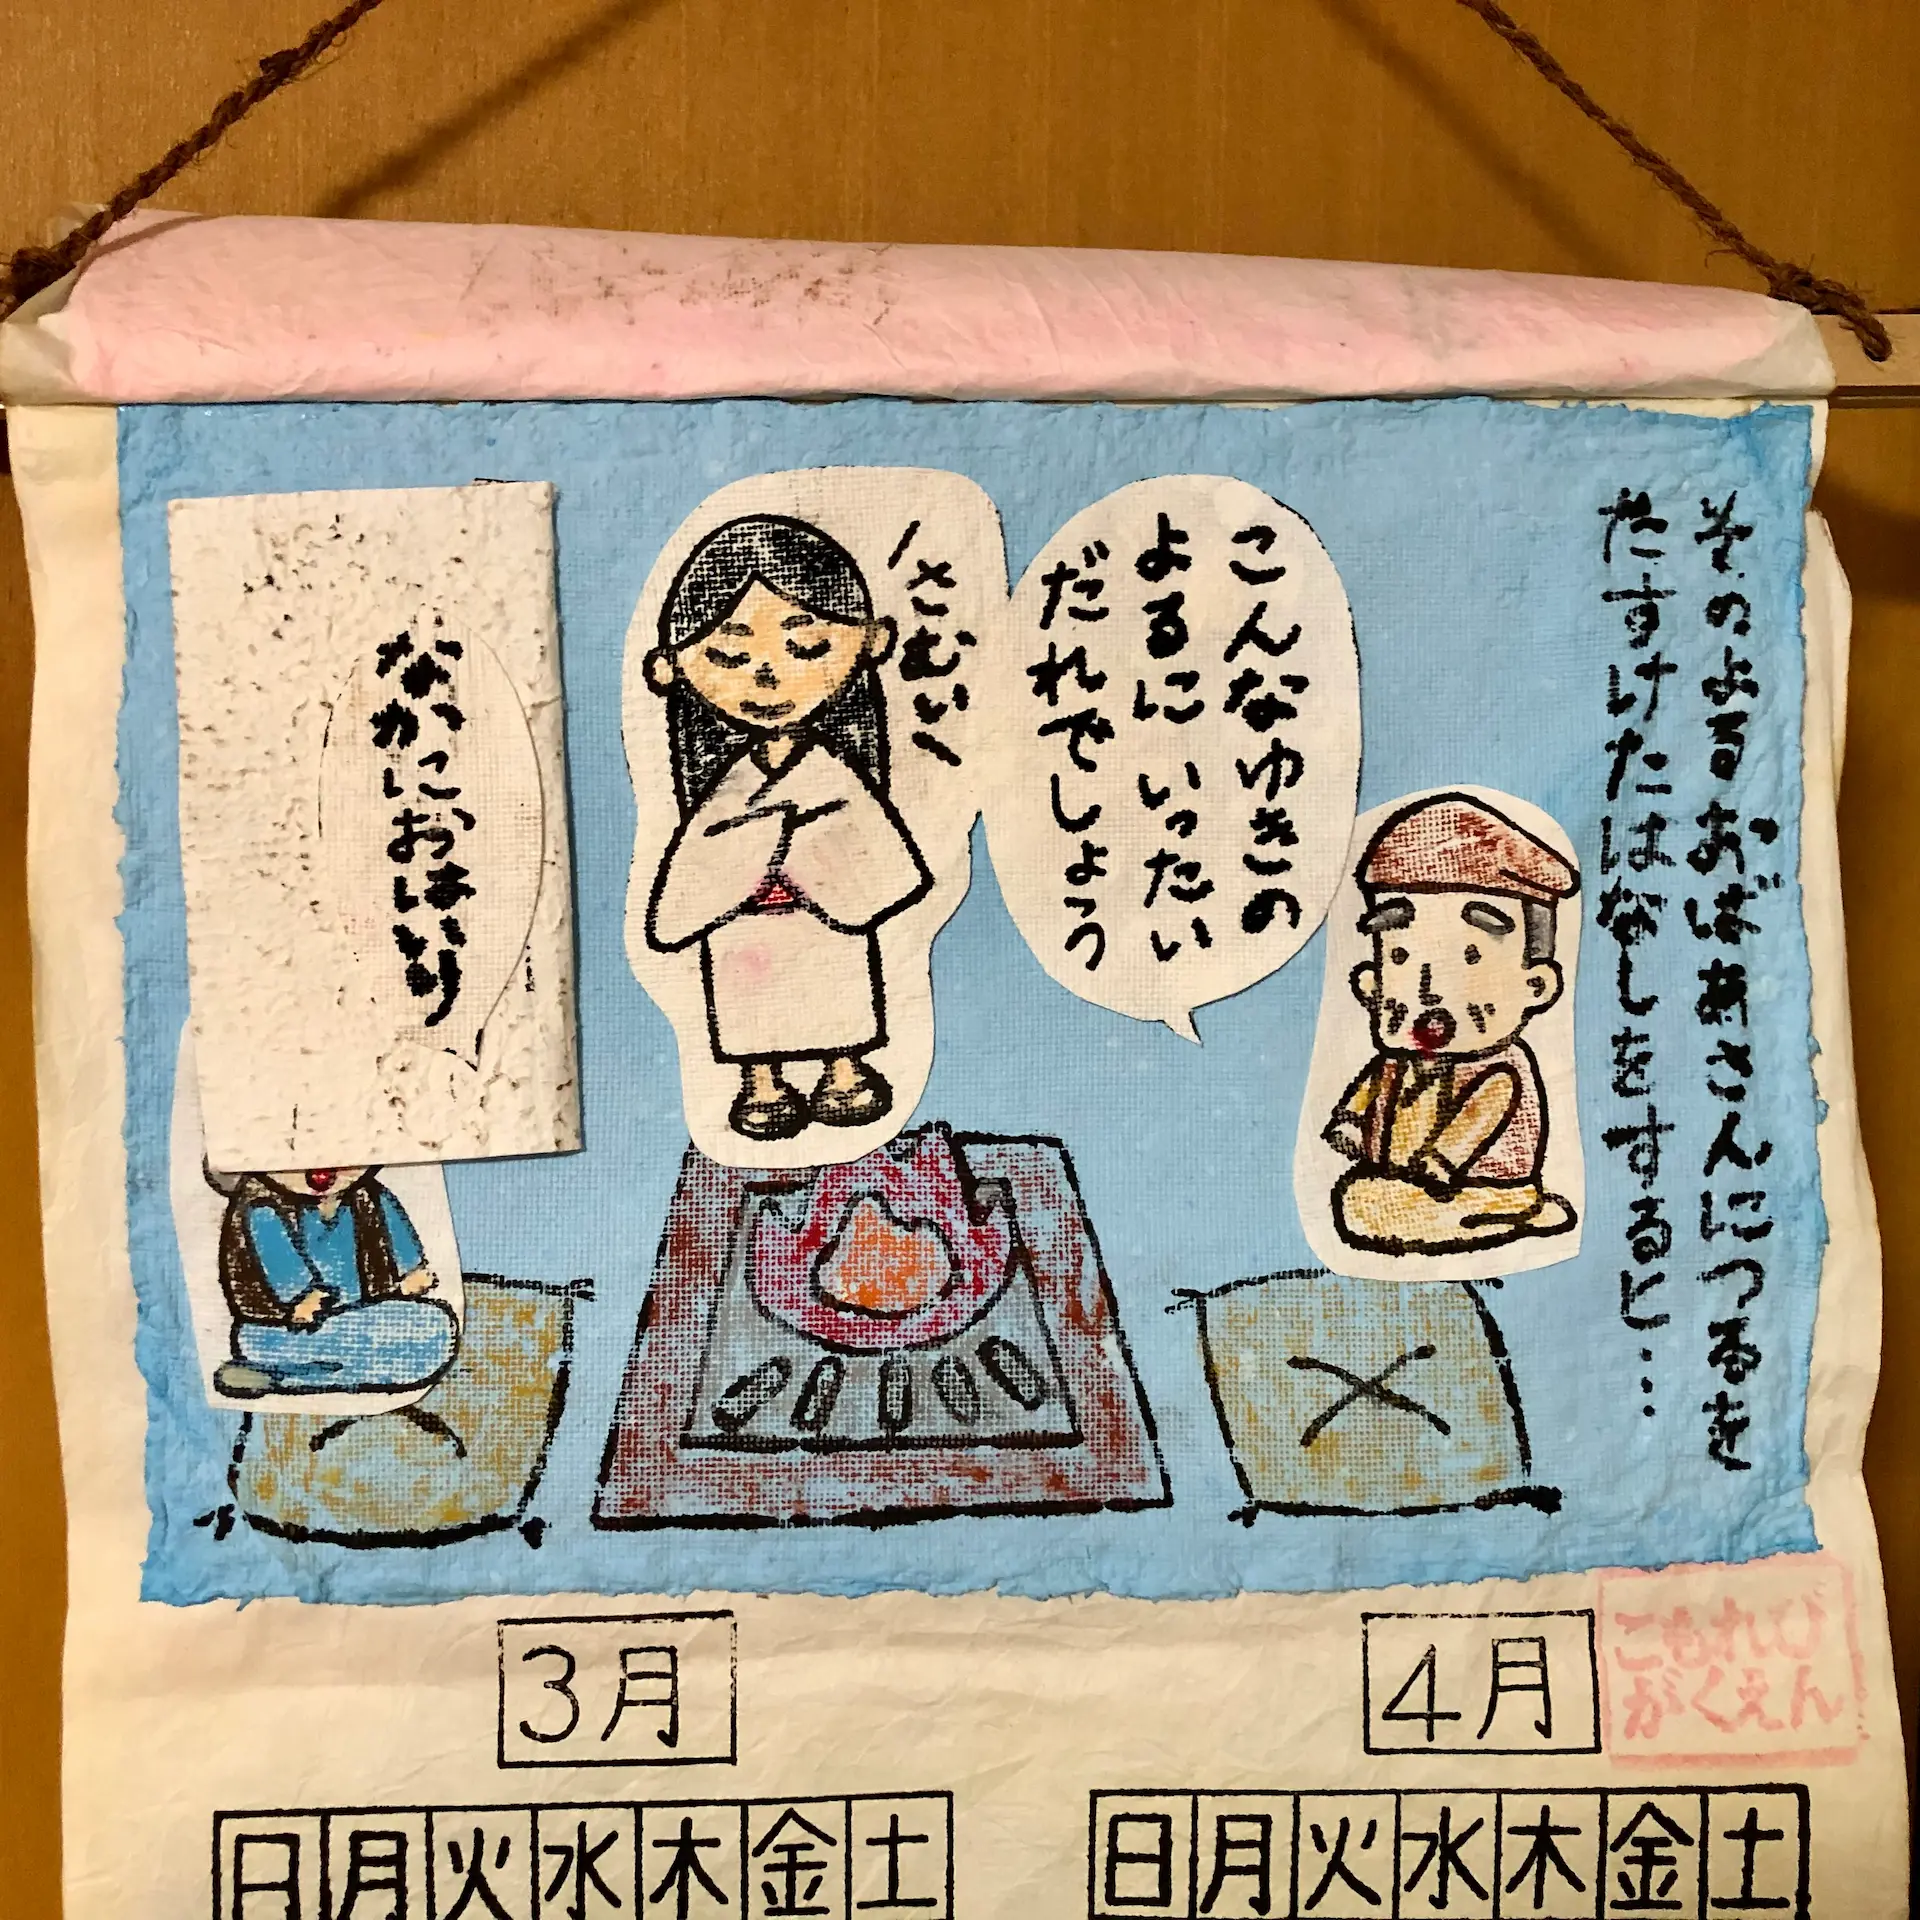 そのよるおばあさんにつるを
たすけたはなしをすると…
こんなゆきの
よるにいったい
だれでしょう
さむい
なかにおはいり
3月
4月
こもれび
がくえん
日月火水木金土
日月火水木金土